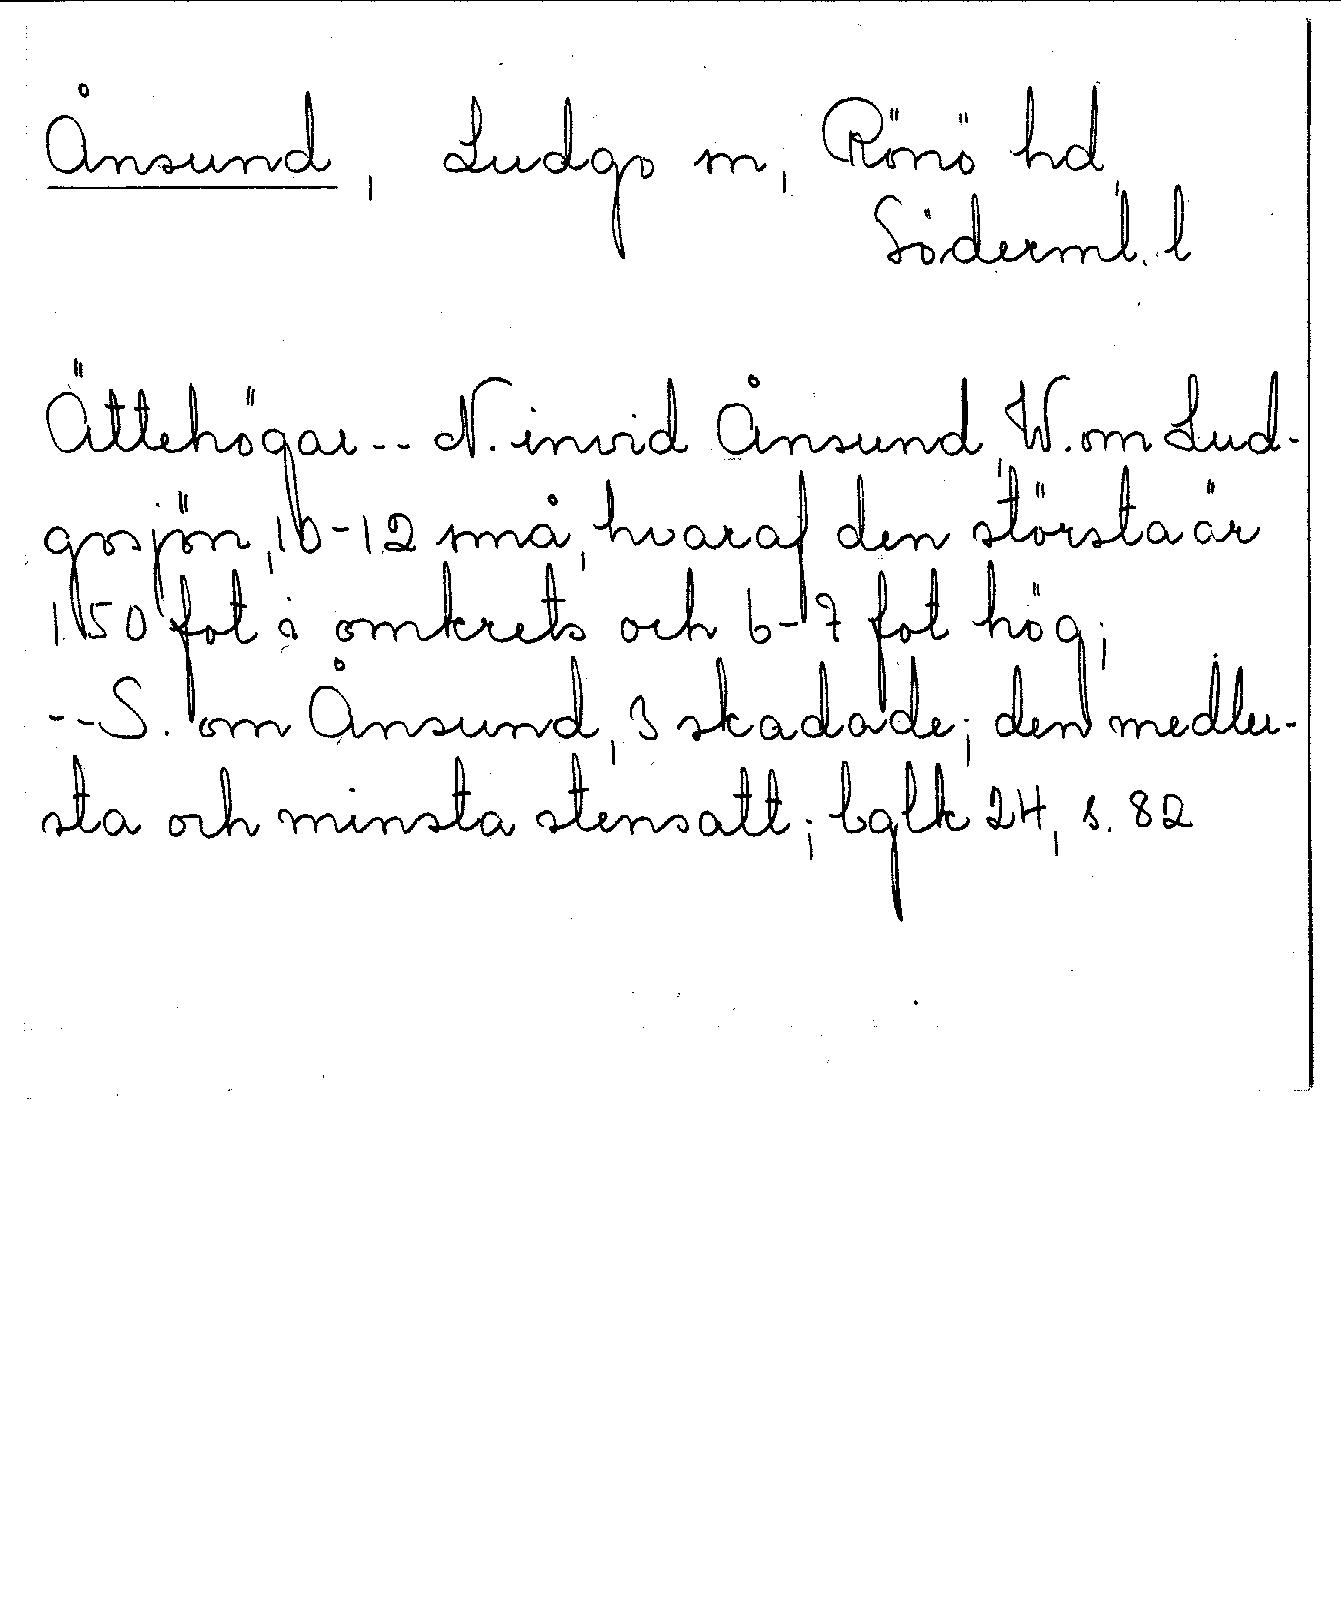 Ånsund, Ludgo sn, Rönö hd,
Söderml. l
Ättehögar -- N. invid Ånsund, W. om Lud-
gosjön, 10-12 små, hvaraf den största är
150 fot i omkrets och 6-7 fot hög;
-- S. om Ånsund, 3 skadade; den medler-
sta och minsta stensatt; bglk 24, s. 82